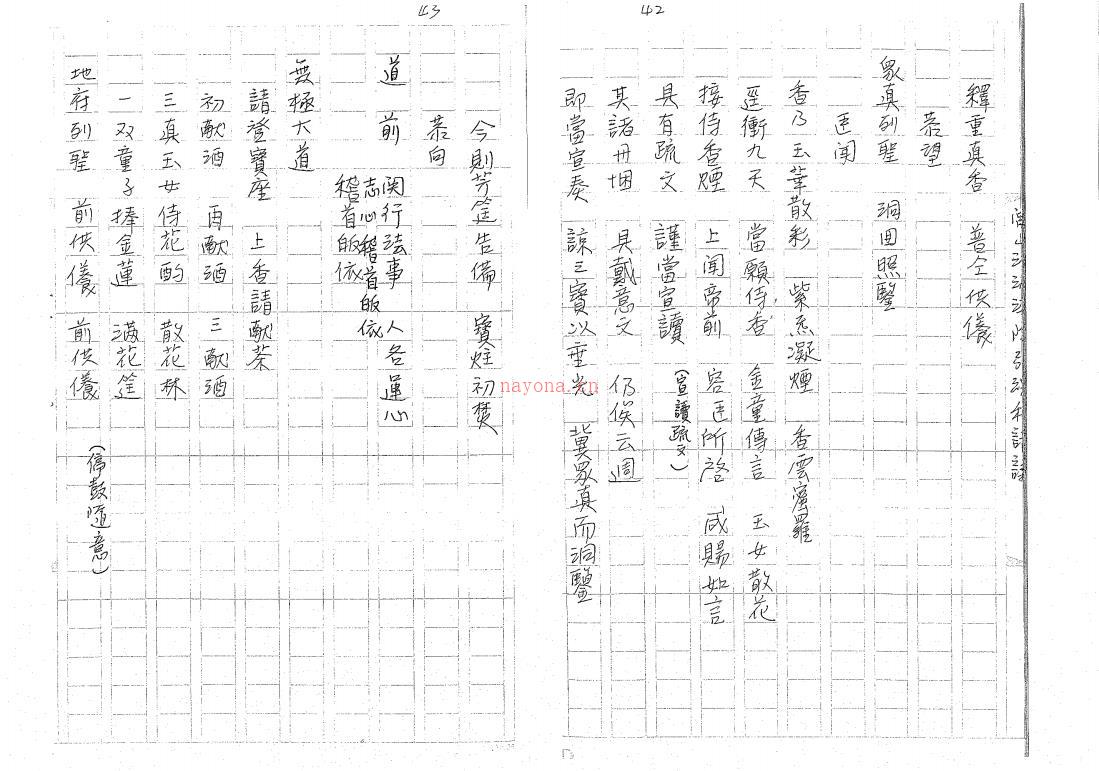 42
釋重真香　普仝供儀
恭望
眾真列聖　洞回照鑒
臣聞
香乃玉華散彩　紫炁凝煙　香雲密羅
逕衝九天　當願侍香　金童傳言　玉女散花
接侍香煙　上聞帝前　容臣所啓　咸賜如言
具有疏文　謹當宣讀　（宣讀疏文）
其諸丹悃　具戴意文　仍俟云週
即當宣奏　諒三寶以垂光　冀眾真而洞鑒
43
今則芳筵告備　寶炷初焚
恭向
道前　関行法事　人各運心
志心稽首皈依
稽首皈依
無極大道
請登寶座　上香請献茶
初献酒　再献酒　三献酒
三真玉女侍花酌　散花林
一双童子捧金蓮　滿花筵
地府列聖　前供儀　前供儀　（停鼓隨意）
nayona.cn